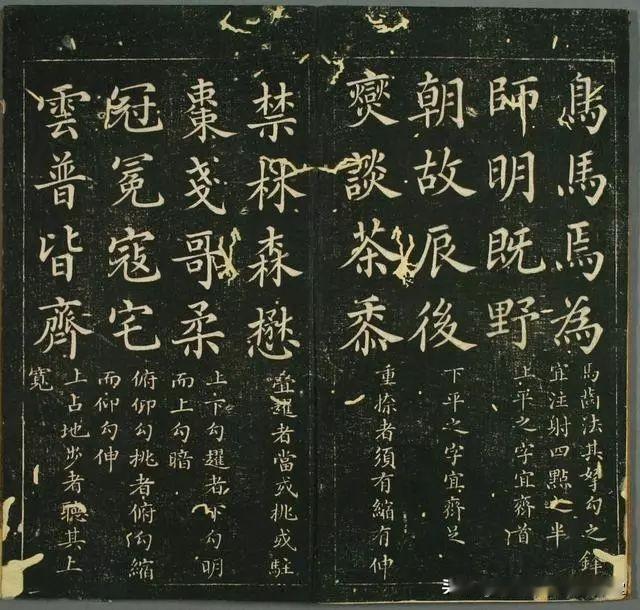 鳥馬焉為
馬齒法其勾之鋒
宜注射四點之半
師明既野
上平之字宜齊首
朝故辰後
下平之字宜齊足
爕談茶黍
重捺者須有縮有伸
禁林森懋
疊趯者當或挑或駐
棗戔哥柔
上下勾趯者下勾明
而上勾暗
冠冕寇宅
俯仰勾挑者俯勾縮
而仰勾伸
雲普皆齊
上占地步者聽其上
寬